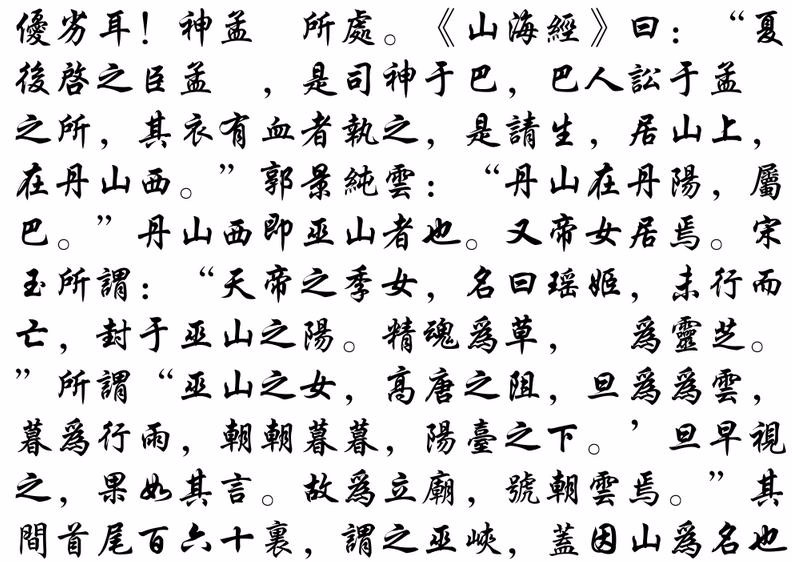 優劣耳！神孟　所處。《山海經》曰：“夏
後啓之臣孟　，是司神于巴，巴人訟于孟
之所，其衣有血者執之，是請生，居山上，
在丹山西。”郭景純雲：“丹山在丹陽，屬
巴。”丹山西即巫山者也。又帝女居焉。宋
玉所謂：“天帝之季女，名曰瑶姬，未行而
亡，封于巫山之陽。精魂爲草，　爲靈芝。
”所謂“巫山之女，高唐之阻，旦爲爲雲，
暮爲行雨，朝朝暮暮，陽臺之下。’旦早視
之，果如其言。故爲立廟，號朝雲焉。”其
間首尾百六十裏，謂之巫峽，蓋因山爲名也